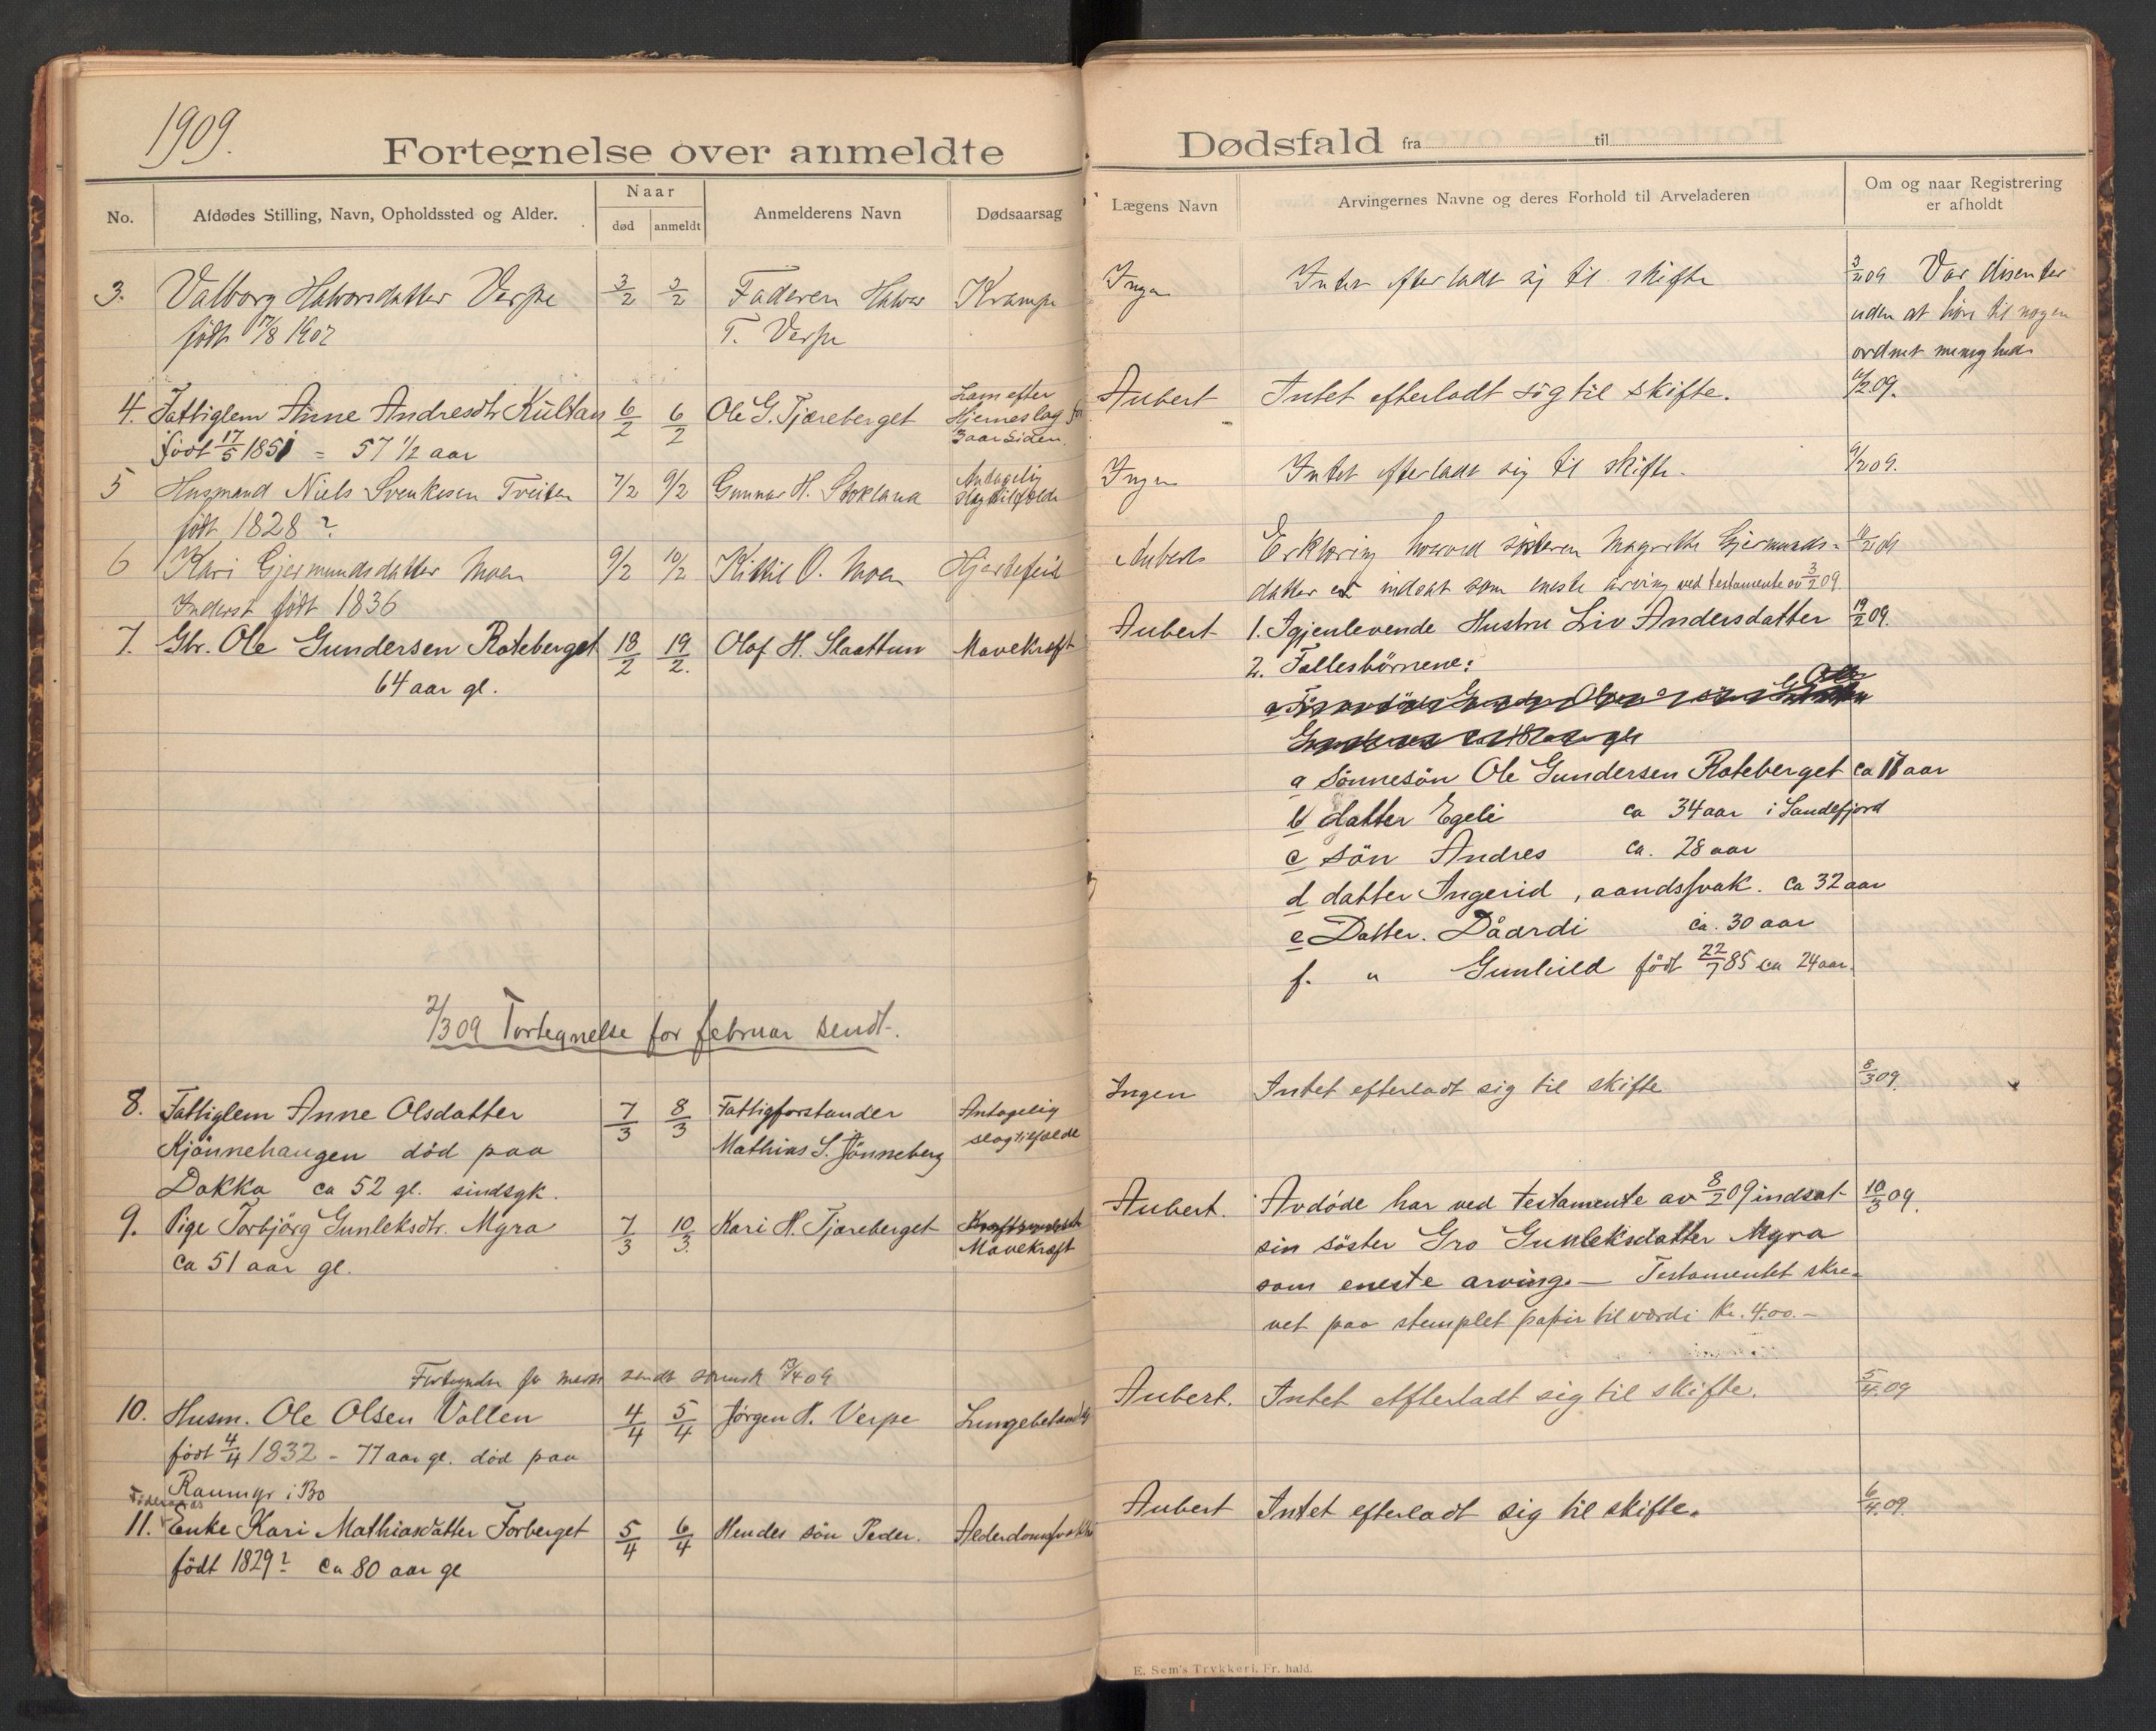 1909.
Fortegnelse over anmeldte
No.
Afdødes Stilling, Navn, Opholdssted og Alder.
Naar
død
anmeldt
Anmelderens Navn
Dødsaarsag
3. Valborg Halvorsdatter Verpe 3/2 3/2 Faderen Halvor Krampe
født 17/8 1907 T. Verpe
4. Fattiglem Anne Andresdtr Kultan 6/2 6/2 Ole G. Tjæreberget Lam efter
Hjerneslag for
3 aar siden.
født 17/5 1851 = 57 1/2 aar
5 Husmand Niels Svenkesen Tveiten 7/2 9/2 Gunnar H. Stokland Antagelig
slagtilfælde
født 1828?
6 Kari Gjermundsdatter Moen 9/2 10/2 Kittil O. Moen Hjertefeil
Inderst født 1836
7. Gbr. Ole Gundersen Roteberget 18/2 19/2. Olaf H. Slaattun Mavekræft
64 aar gl.
2/3 09 Fortegnelse for februar sendt.
8. Fattiglem Anne Olsdatter 7/3 8/3 Fattigforstander Antagelig
Kjønnehaugen død paa Mathias S. Jønneberg slagtilfælde
Dokka ca 52 gl. sindsyk.
9. Pige Torbjörg Gunleksdtr. Myra 7/3 10/3. Kari H. Tjæreberget
Mavekræft
ca 51 aar gl.
Fortegnelse for mars sendt 13/4 09
10. Husm. Ole Olsen Vollen 4/4 5/4 Jørgen H. Verpe
født 4/4 1832 - 77 aar gl. død paa
Raumyr i Bø
11. Enke Kari Mathiasdatter Forberget 5/4 6/4 Hendes søn Peder. Alderdomsvakhe
født 1829? ca 80 aar gl
Dødsfald fra til
Lægens Navn
Arvingernes Navne og deres Forhold til Arveladeren
Om og naar Registrering
er afholdt
Ingen Intet efterladt sig til skifte 3/2 09 Var disenter
uden at høre til nogen
ordnet menighed
Aubert Intet efterladt sig til skifte. 6/2 09.
Ingen Intet efterladt sig til skifte. 9/2 09.
Aubert Erklæring hvorved søsteren Magrethe Gjermunds- 10/2 09
datter er indsat som eneste arving ved testamente av 3/2 09.
Aubert 1. Igjenlevende Hustru Liv Andersdatter 19/2 09.
2. Fællesbørnene:
a sønnesøn Ole Gundersen Roteberget ca 17 aar
b datter Egeli ca 34 aar i Sandefjord
c søn Andres ca. 28 aar
d datter Ingerid, aandssvak. ca 32 aar
e Datter. Dåardi ca. 30 aar
f. " Gunhild født 22/7 85 ca 24 aar.
Ingen Intet efterladt sig til skifte 8/3 09.
Aubert. Avdøde har ved testamente av 8/2 09 indsat 10/3 09.
sin søster Gro Gunleksdatter Myra
som eneste arving. — Testamentet skre-
vet paa stemplet papir til værdi kr. 4.00. —
Aubert. Intet efterladt sig til skifte. 5/4. 09
Aubert Intet efterladt sig til skifte. 6/4. 09.
E. Sem's Trykkeri, Fr. hald.